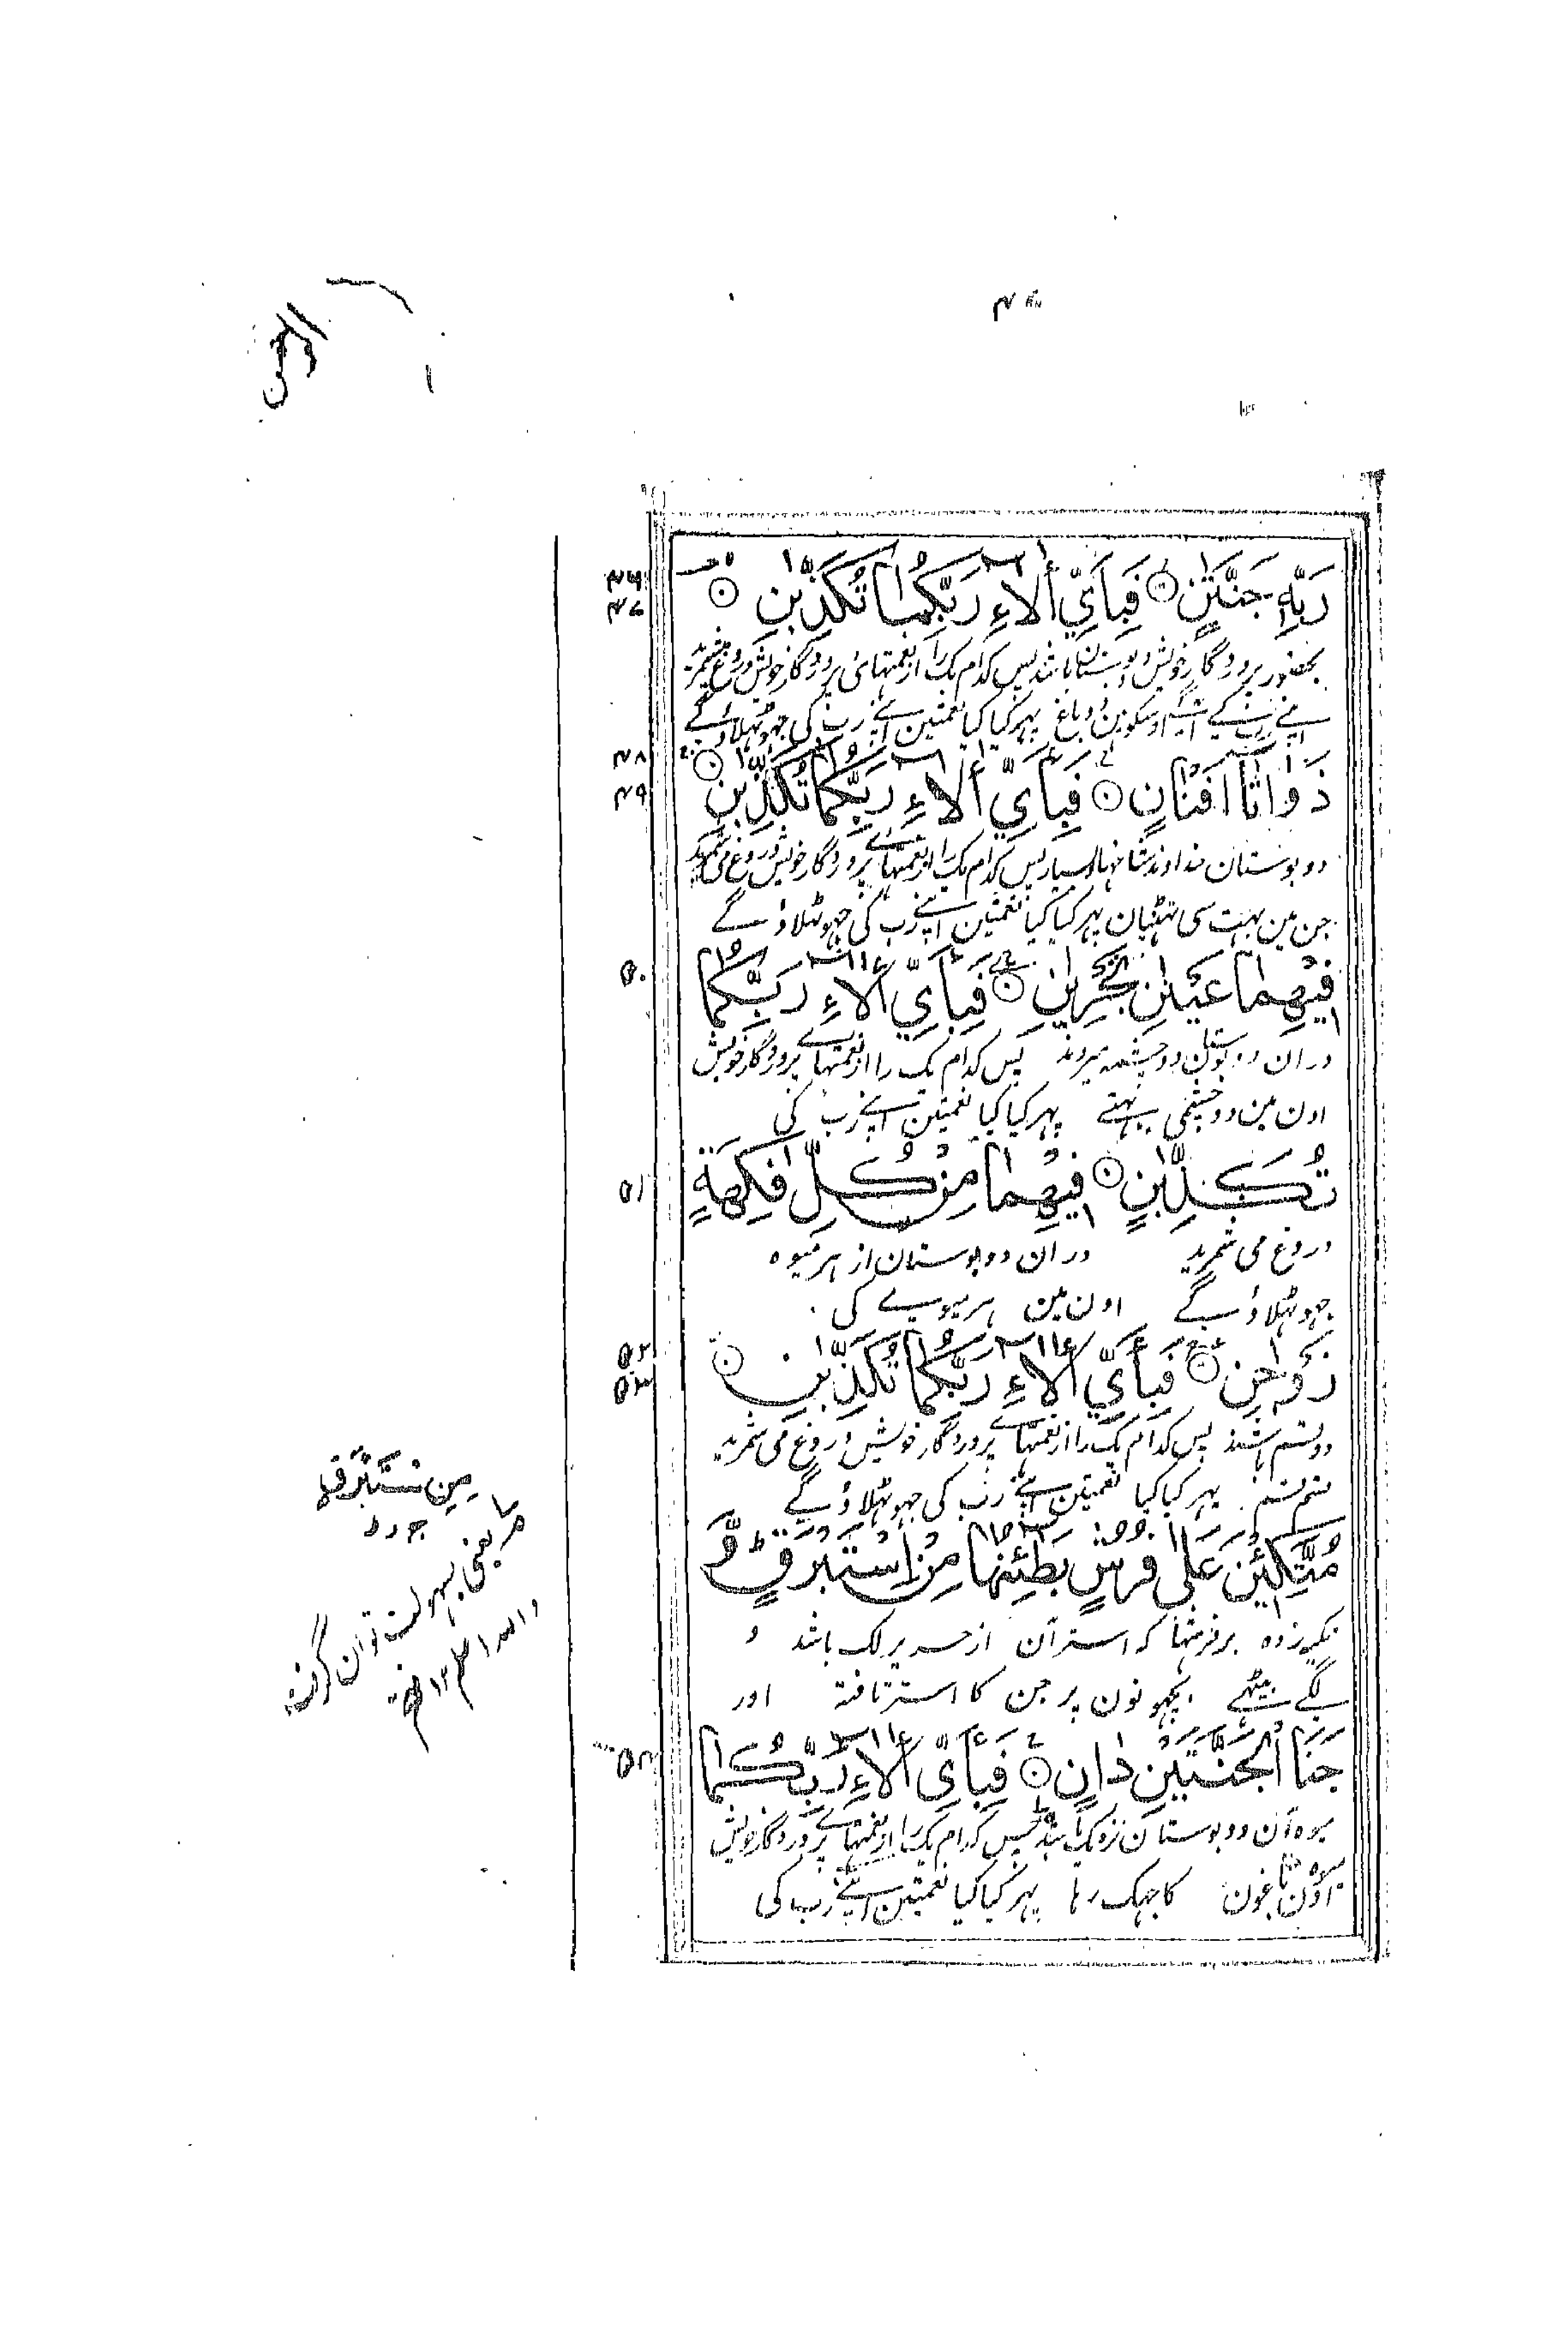 الرحمن
رَبِّهٖ جَنَّتٰنِ فَبِاَيِّ اٰلَاءِ رَبِّكُمَا تُكَذِّبٰنِ
۴۶
۴۷
بحضور پروردگار خویش دو بوستان باشد پس کدام یک را از نعمتهای پروردگار خویش دروغ میشمرید
اپنے رب کے آگے اوسکو ہین دو باغ پہر کیا کیا نعمتین اپنے رب کی جہوٹہلاؤگے
ذَوَاتَآ اَفْنَانٍ فَبِاَيِّ اٰلَاءِ رَبِّكُمَا تُكَذِّبٰنِ
۴۸
۴۹
دو بوستان خداوند شاخهای بسیار پس کدام یک را از نعمتهاے پروردگار خویش دروغ می شمرید
جن مین بہت سی ٹہنیان پہر کیا کیا نعمتین اپنے رب کی جہوٹہلاؤ گے
فِيْهِمَا عَيْنٰنِ تَجْرِيٰنِ فَبِاَيِّ اٰلَاءِ رَبِّكُمَا
۵۰
دران دو بوستان دو چشمه میروند پس کدام یک را از نعمتهاے پروردگار خویش
اون مین دو چشمی بہتے پہر کیا کیا نعمتین اپنے رب کی
تُكَذِّبٰنِ فِيْهِمَا مِنْ كُلِّ فَاكِهَةٍ
۵۱
دروغ می شمرید دران دو بوستان از هر میوه
جہوٹہلاؤ گے اون مین ہر میوے کی
زَوْجٰنِ فَبِاَيِّ اٰلَاءِ رَبِّكُمَا تُكَذِّبٰنِ
۵۲
۵۳
دو قسم باشند پس کدام یک را از نعمتهاے پروردگار خویش دروغ می شمرید
قسم قسم پہر کیا کیا نعمتین اپنے رب کی جہوٹہلاؤ گے
مُتَّكِئِيْنَ عَلٰى فُرُشٍ بَطَآئِنُهَا مِنْ اِسْتَبْرَقٍ وَّ
تکیه زده بر فرشها که استر آن از حریر لک باشد و
لگے بیٹہے بچہونون پر جن کا استر تافتہ اور
جَنَا الْجَنَّتَيْنِ دَانٍ فَبِاَيِّ اٰلَاءِ رَبِّكُمَا
۵۴
میوه آن دو بوستان نزدیک باشد پس کدام یک را از نعمتهاے پروردگار خویش
میوہ اون باغون کا جہک رہا پہر کیا کیا نعمتین اپنے رب کی
مِنِ سْتَبْرَقٍ
یعنی بسهولت توان گرفت
والله اعلم ۱۲